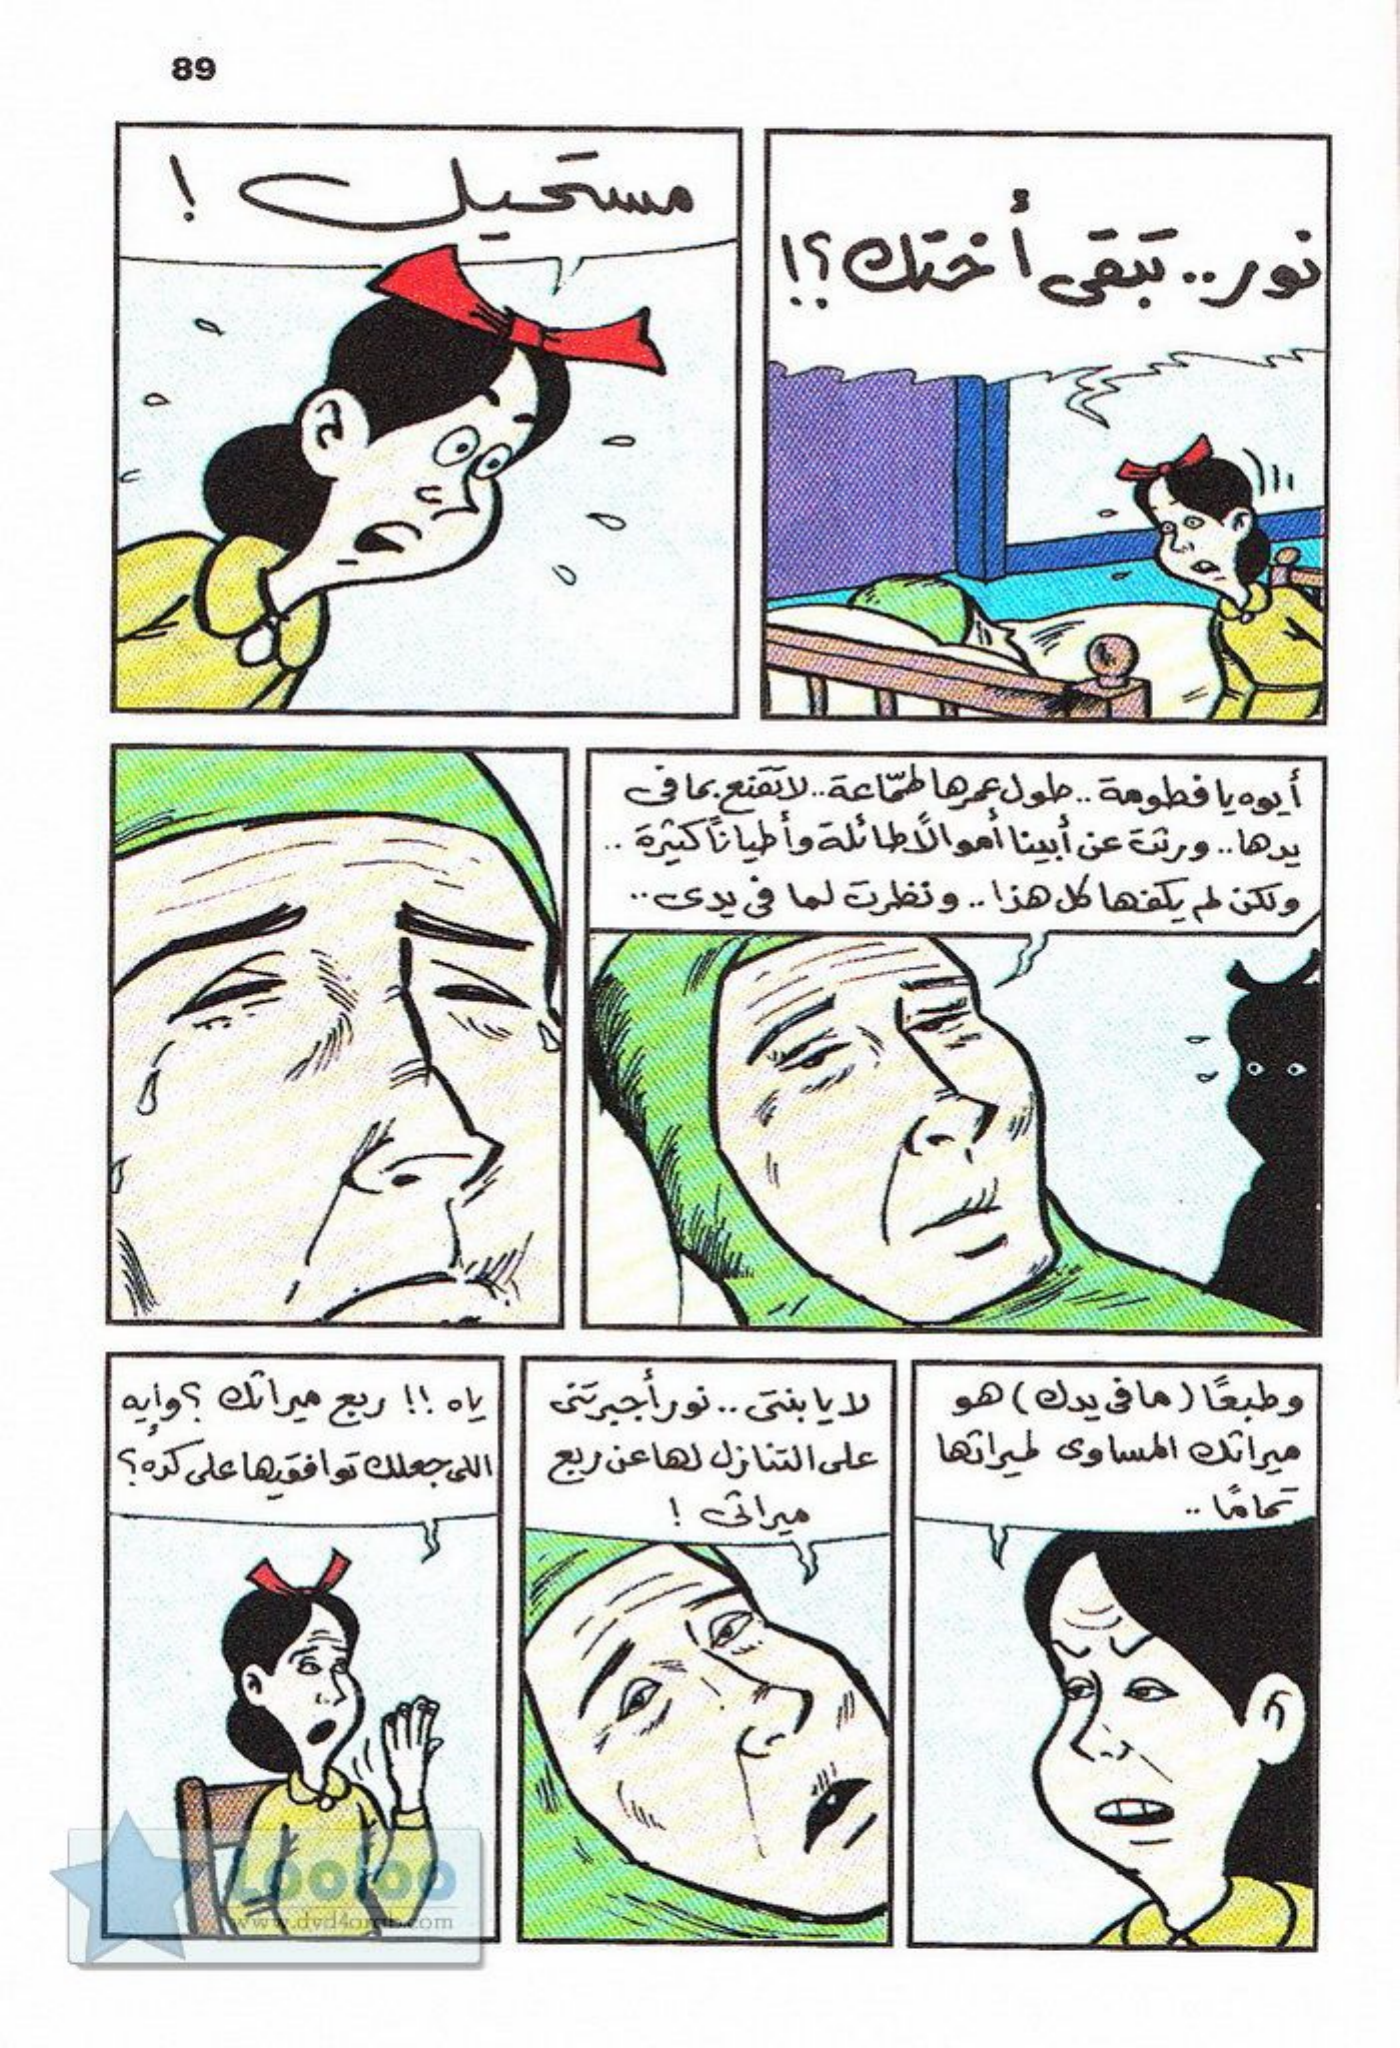 89
نور.. تبقى أختك؟!
مستحيل !
أيوه يا فطومة.. طول عمرها طمّاعة.. لا تقنع بما فى
يدها.. ورثت عن أبينا أموالًا طائلة وأطيانًا كثيرة..
ولكن لم يكفها كل هذا.. ونظرت لما فى يدى..
وطبعًا (ما فى يدك) هو
ميراثك المساوى لميراثها
تمامًا..
لا يا بنتى.. نور أجبرتنى
على التنازل لها عن ربع
ميراثى !
ياه !! ربع ميراثك ؟ وإيه
اللى جعلك توافقيها على كده؟
Looloo
www.dvd4arab.com